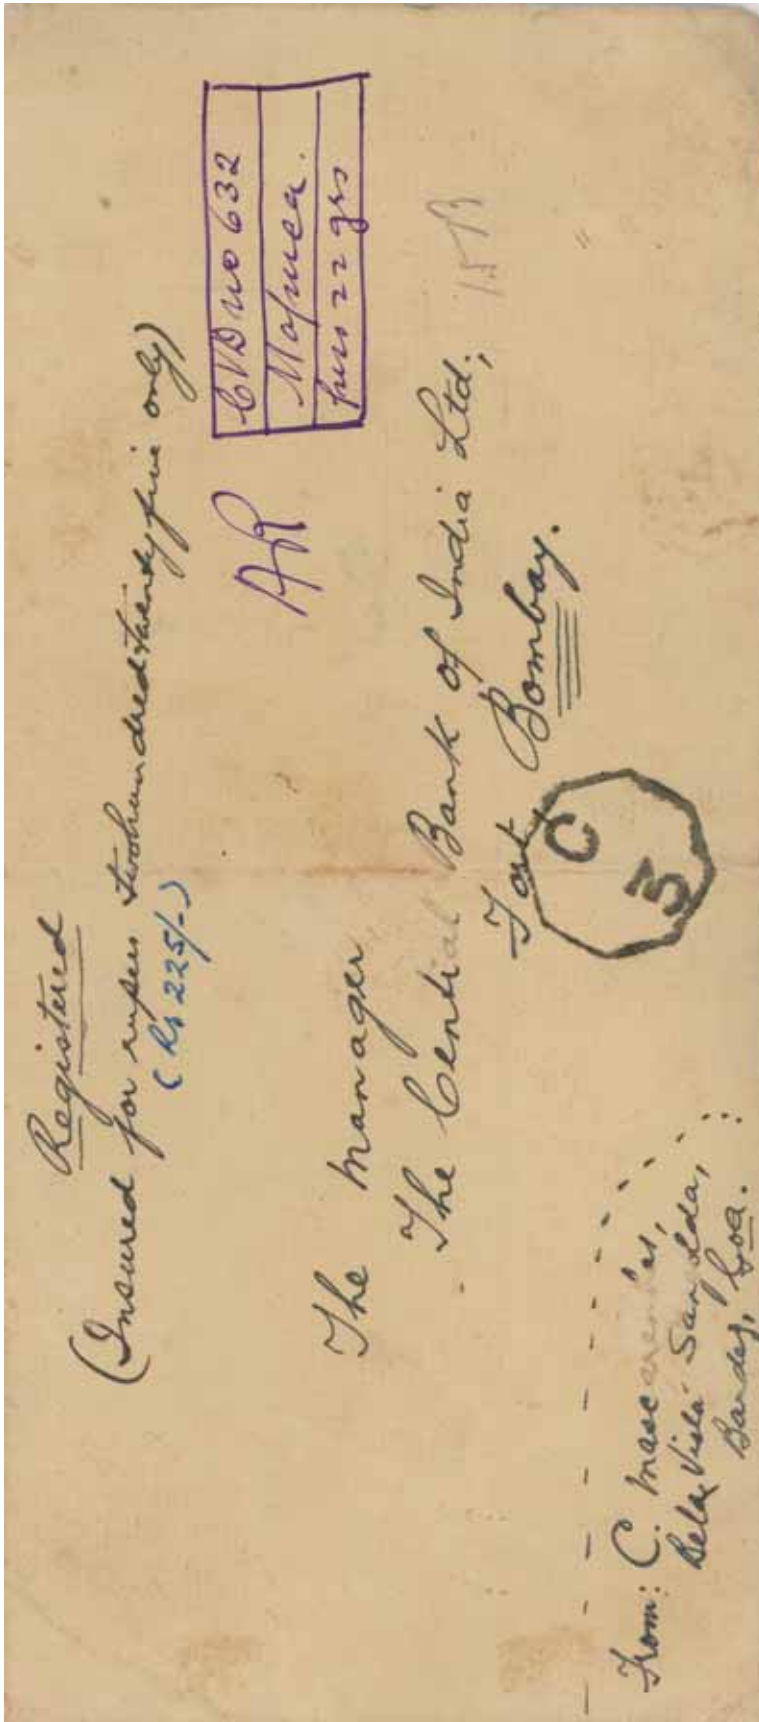 Registered
(Insured for rupees two hundred twenty five only)
(Rs 225/-)
AR
CVD no 632
Mapuca.
peso 22 grs
15 B
The Manager
The Central Bank of India Ltd;
Fort, Bombay.
C
3
From: C. Mascarenhas,
Bela Vista Sangolda,
Bardez, Goa.